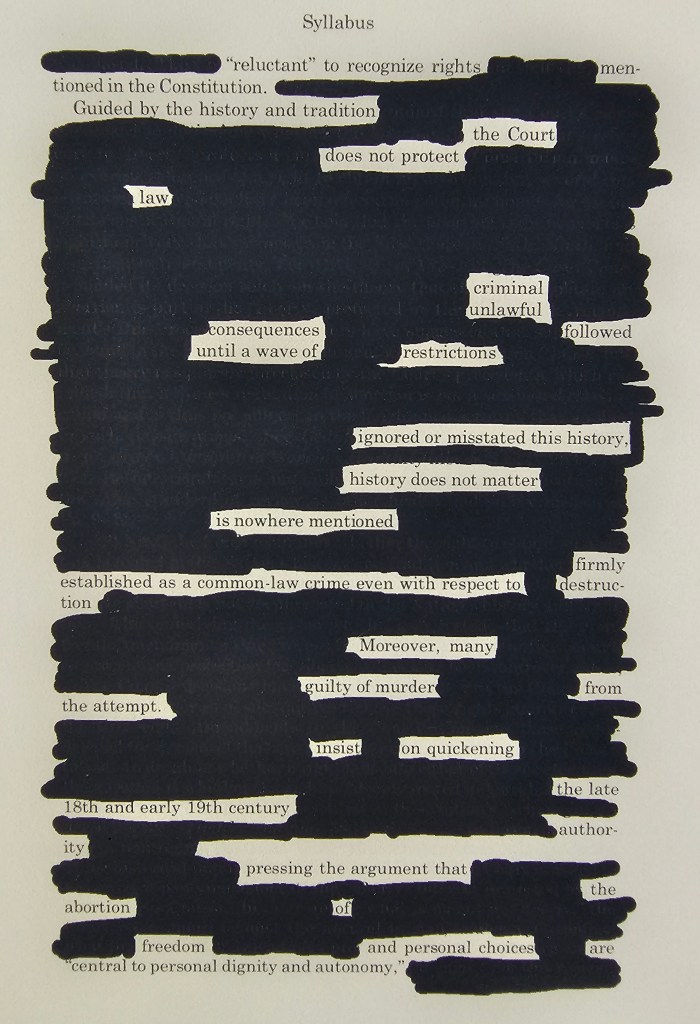 Syllabus
"reluctant" to recognize rights men-
tioned in the Constitution.
Guided by the history and tradition
the Court
does not protect
law
criminal
unlawful
consequences followed
until a wave of restrictions
ignored or misstated this history,
history does not matter
is nowhere mentioned
firmly
established as a common-law crime even with respect to destruc-
tion
Moreover, many
guilty of murder from
the attempt.
insist on quickening
the late
18th and early 19th century
author-
ity
pressing the argument that
the
abortion of
freedom and personal choices are
"central to personal dignity and autonomy,"